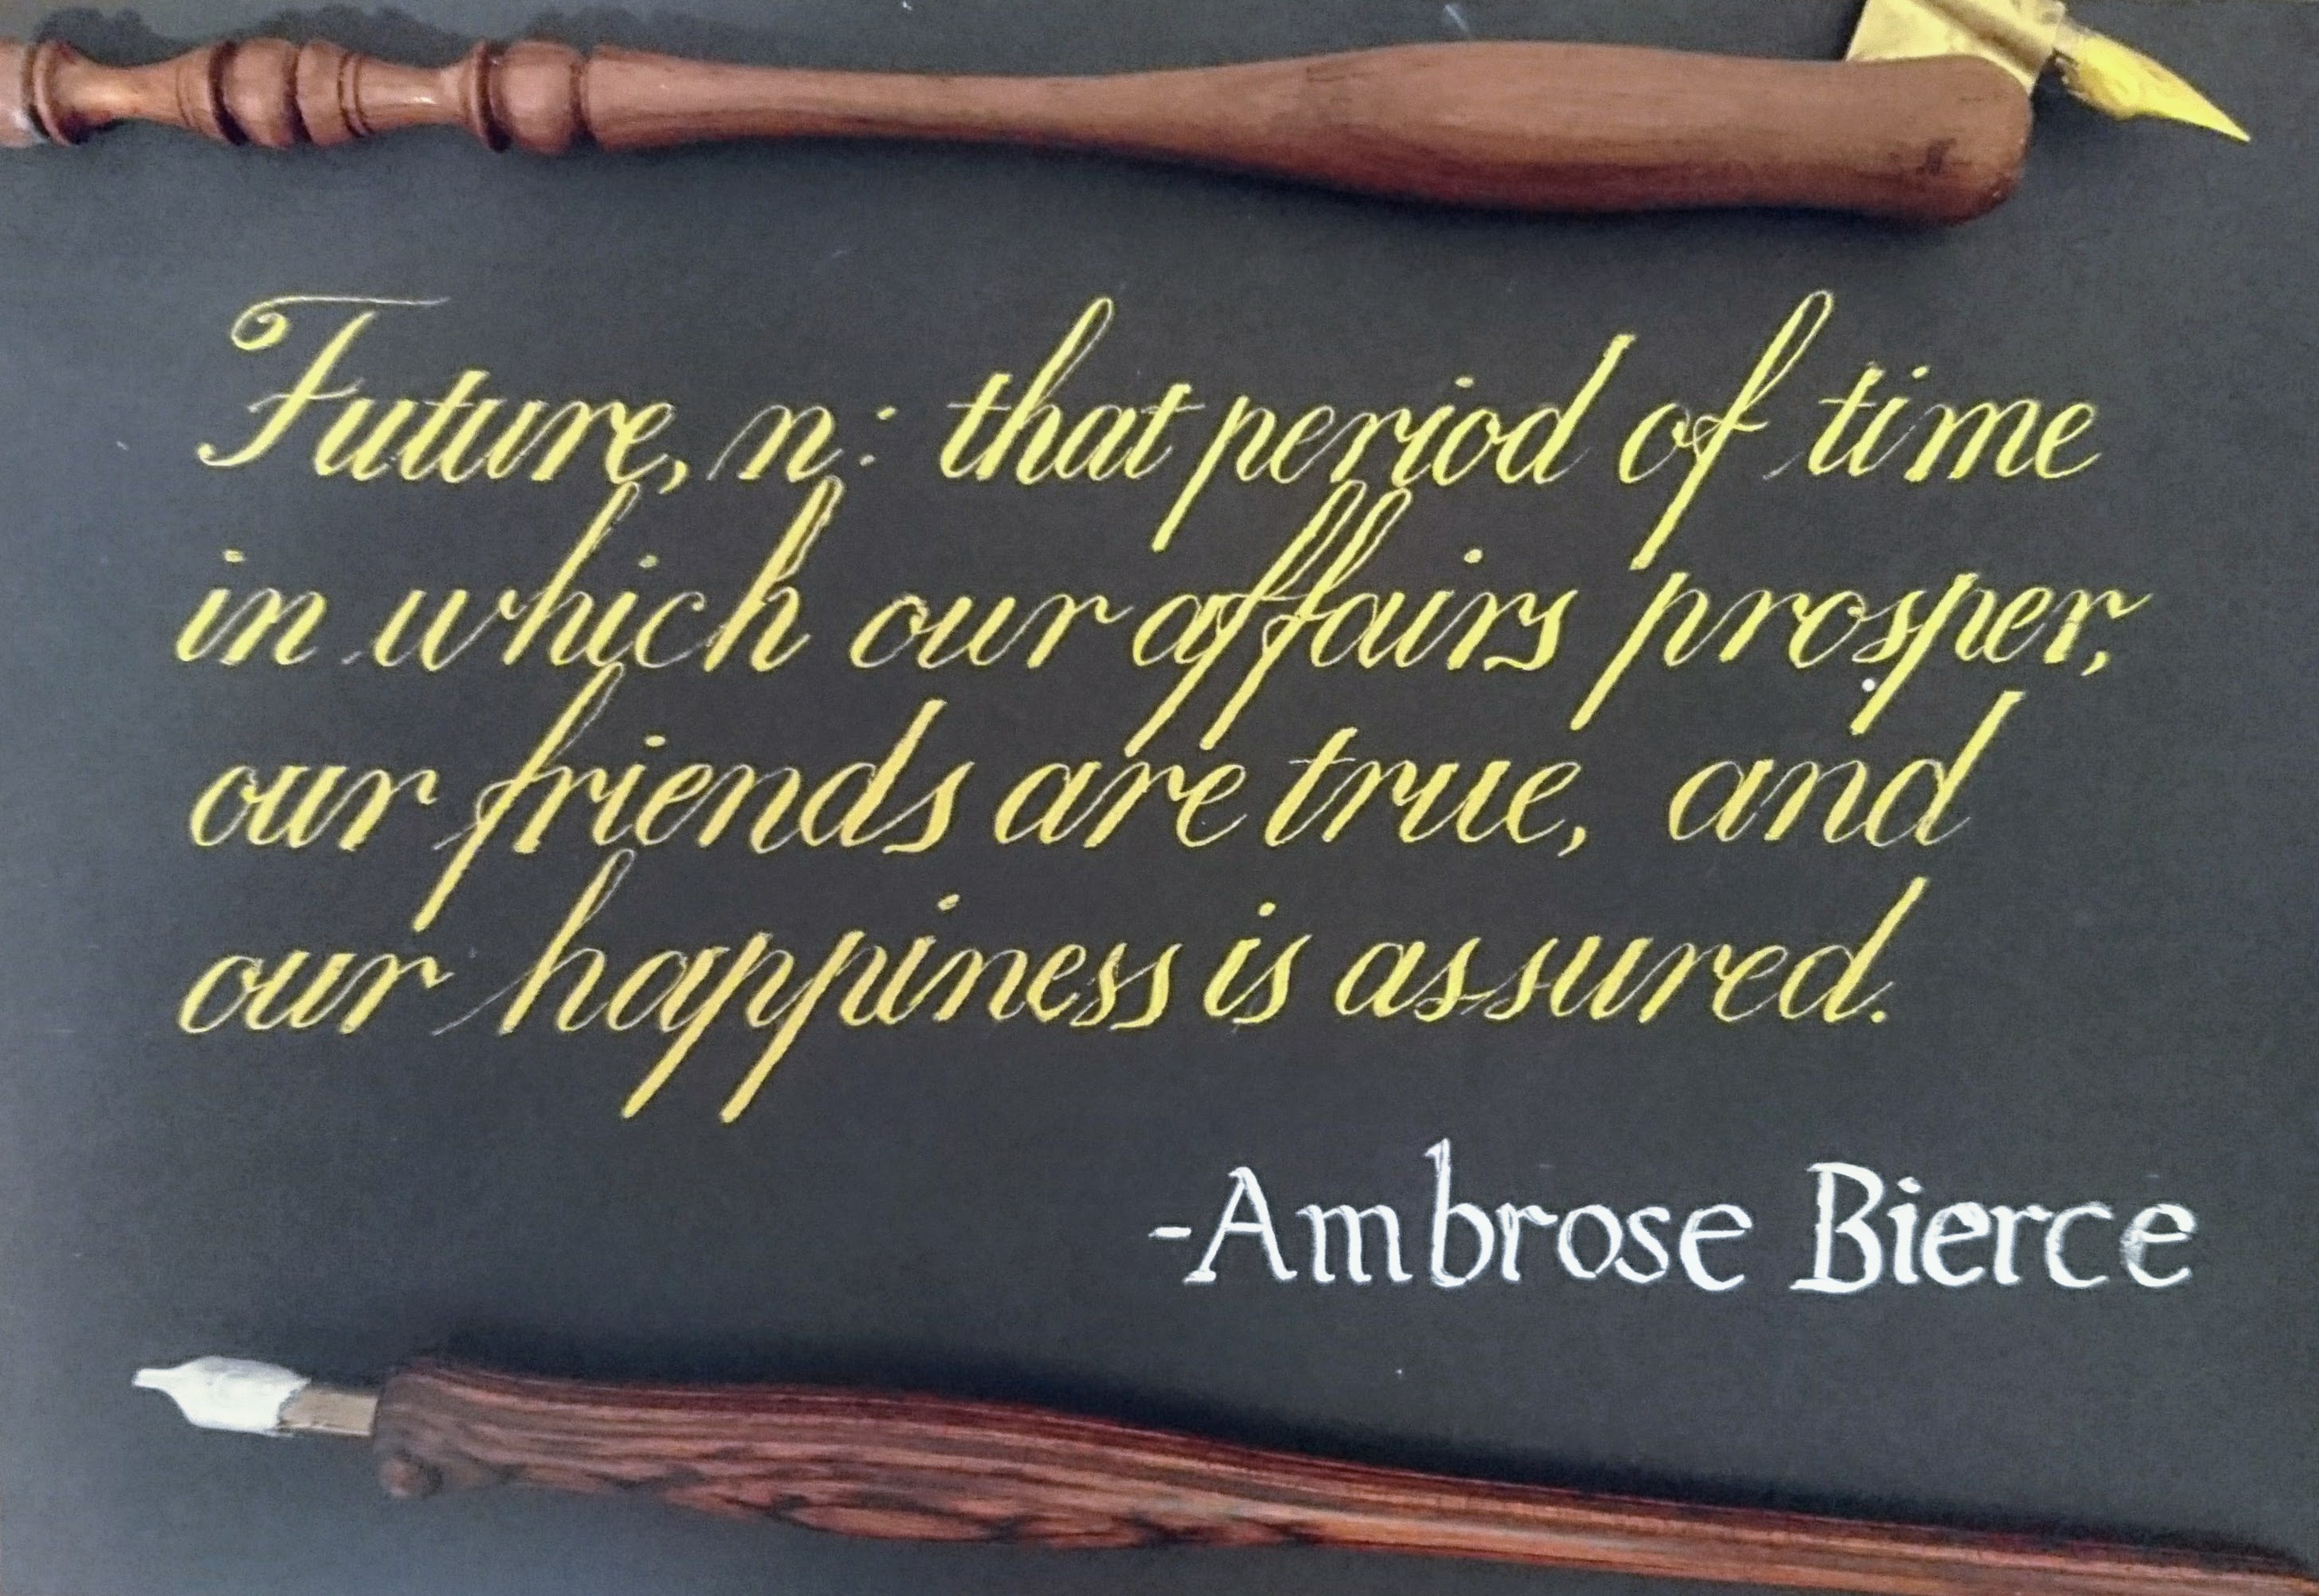 Future, n: that period of time
in which our affairs prosper,
our friends are true, and
our happiness is assured.
-Ambrose Bierce